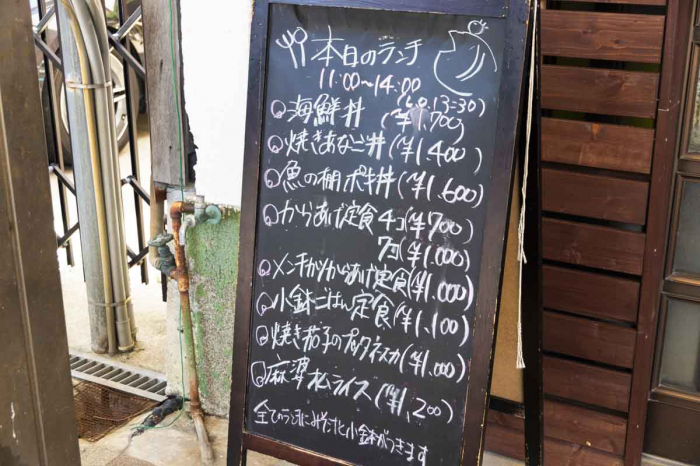 本日のランチ
11:00〜14:00
(L.O.13:30)
海鮮丼 (¥1.700)
焼きあなご丼 (¥1.400)
魚の棚ポキ丼 (¥1.600)
からあげ定食 4コ (¥700)
7コ (¥1.000)
メンチカツからあげ定食 (¥1.000)
小鉢ごはん定食 (¥1.100)
焼き茄子のプッタネスカ (¥1.000)
麻婆 ライス (¥1.200)
全てのランチにみそ汁と小鉢がつきます